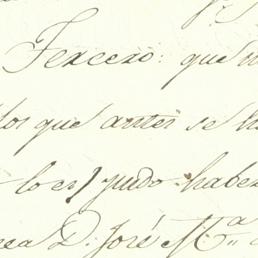 Tercero: que
los que antes se
lo es/ pudo haber
D. José M.ª